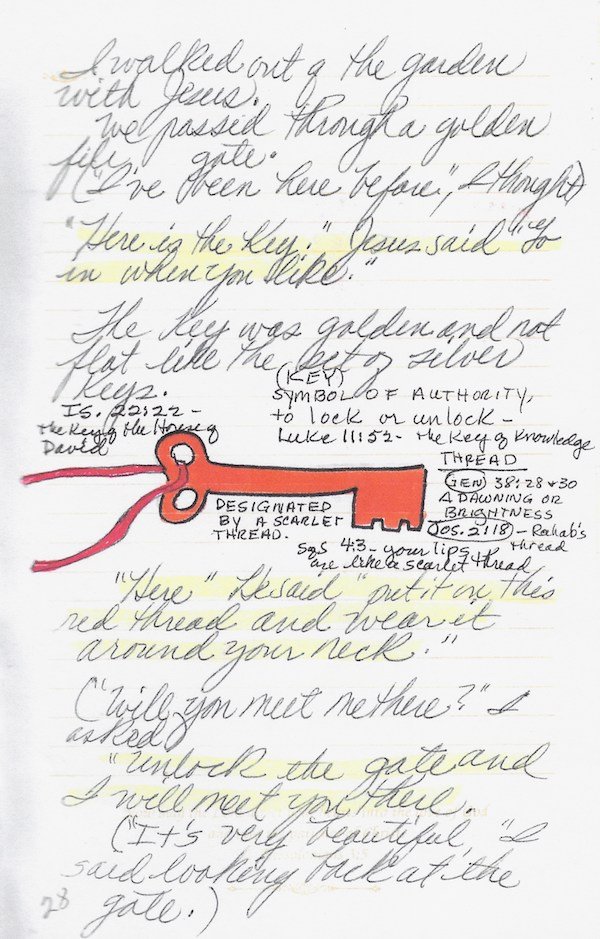 I walked out of the garden
with Jesus.
We passed through a golden
gate.
("I've been here before", I thought)
"Here is the key." Jesus said "Go
in when you like."
The key was golden and not
flat like the set of silver
keys.
Is. 22:22 -
the Key of the House of
David
(KEY)
SYMBOL OF AUTHORITY,
to lock or unlock -
Luke 11:52 - the Key of Knowledge
DESIGNATED
BY A SCARLET
THREAD.
THREAD
GEN 38:28 & 30
A DAWNING OR
BRIGHTNESS
JOS. 2:18) - Rahab's
thread
SgS 4:3 - your lips
are like a scarlet thread
"Here" He said "put it on this
red thread and wear it
around your neck."
("Will you meet me there?" I
asked)
"Unlock the gate and
I will meet you there.
("It's very beautiful," I
said looking back at the
gate.)
28